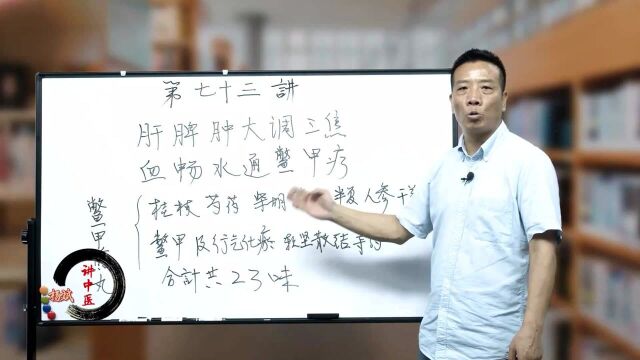 第七十三讲
肝脾肿大调三焦
血畅水通鳖甲疗
桂枝 芍药 柴胡 半夏 人参 干
鳖甲及行气化瘀 软坚散结等药
合计共23味
鳖甲 丸
杨斌
讲中医